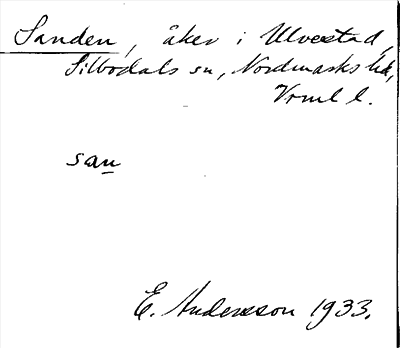 Sanden, åker i Ulvestad,
Silbodals sn, Nordmarks hd,
Vrml l.
san
E. Andersson 1933.